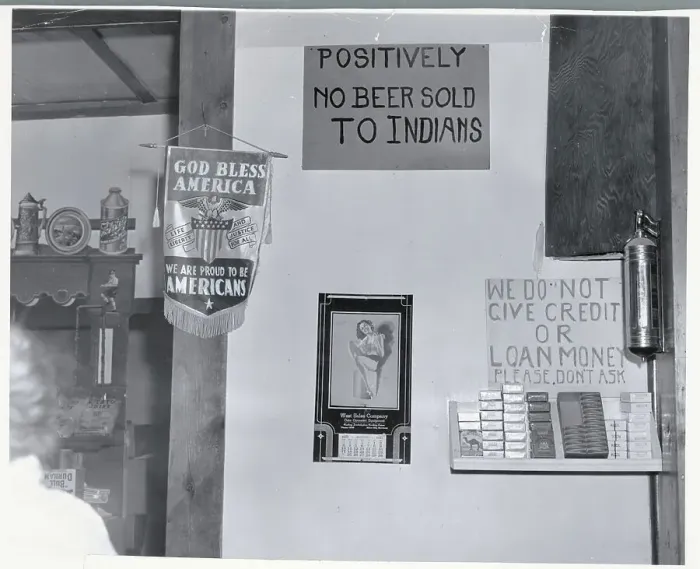 POSITIVELY
NO BEER SOLD
TO INDIANS
GOD BLESS
AMERICA
LIFE
LIBERTY
AND
JUSTICE
FOR ALL
WE ARE PROUD TO BE
AMERICANS
West Sales Company
WE DO NOT
GIVE CREDIT
OR
LOAN MONEY
PLEASE DONT ASK
BULL
DURHAM